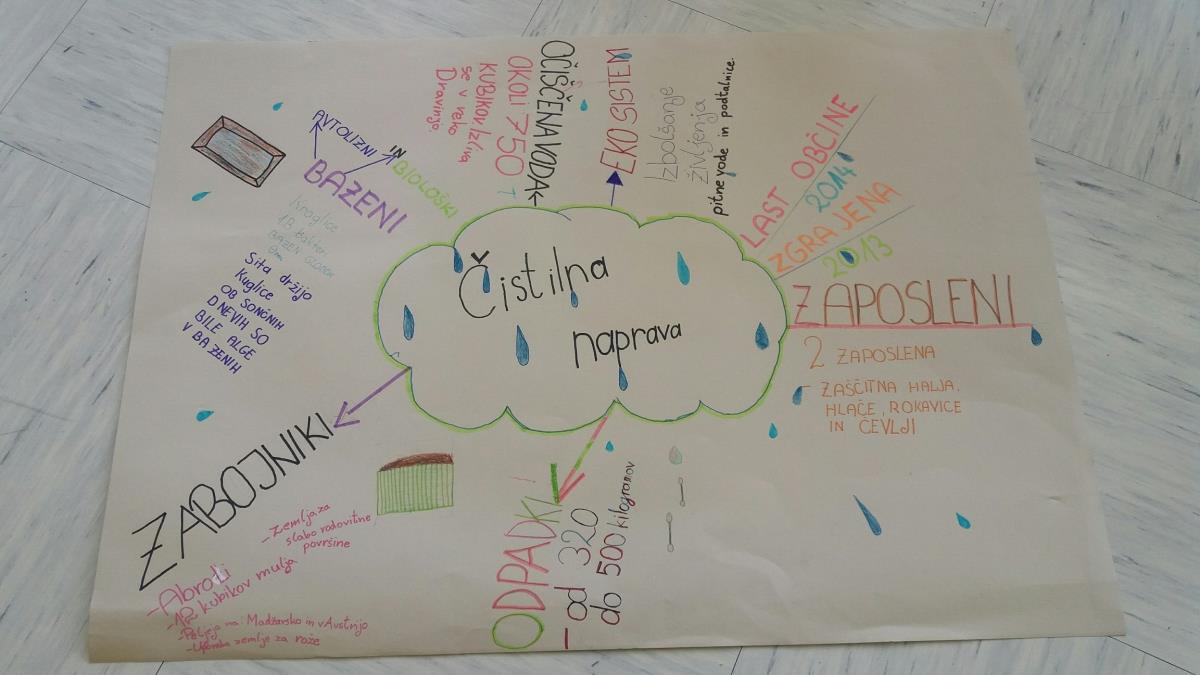 Čistilna
naprava
OČIŠČENA VODA
OKOLI 750
KUBIKOV IZLIVA
se v reko
Dravinjo.
EKO SISTEM
Izbolšanje
življenja
pitne vode in podtalnice.
LAST OBČINE
2014
ZGRAJENA
2013
ZAPOSLENI
2 ZAPOSLENA
- ZAŠČITNA HALJA,
HLAČE, ROKAVICE
IN ČEVLJI
ODPADKI
- od 320
do 500 kilogramov
ZABOJNIKI
- Zemlja za
slabo rodovitne
površine
- Abroli
- 12 kubikov mulja
- Peljejo na: Madžarsko in v Avstrijo
- Uporaba zemlje za rože
BAZENI
AVTOLIZNI
IN
BIOLOŠKI
BAZEN GLOBOK
Sita držijo
Kuglice
OB SONČNIH
DNEVIH SO
BILE ALGE
V BAZENIH